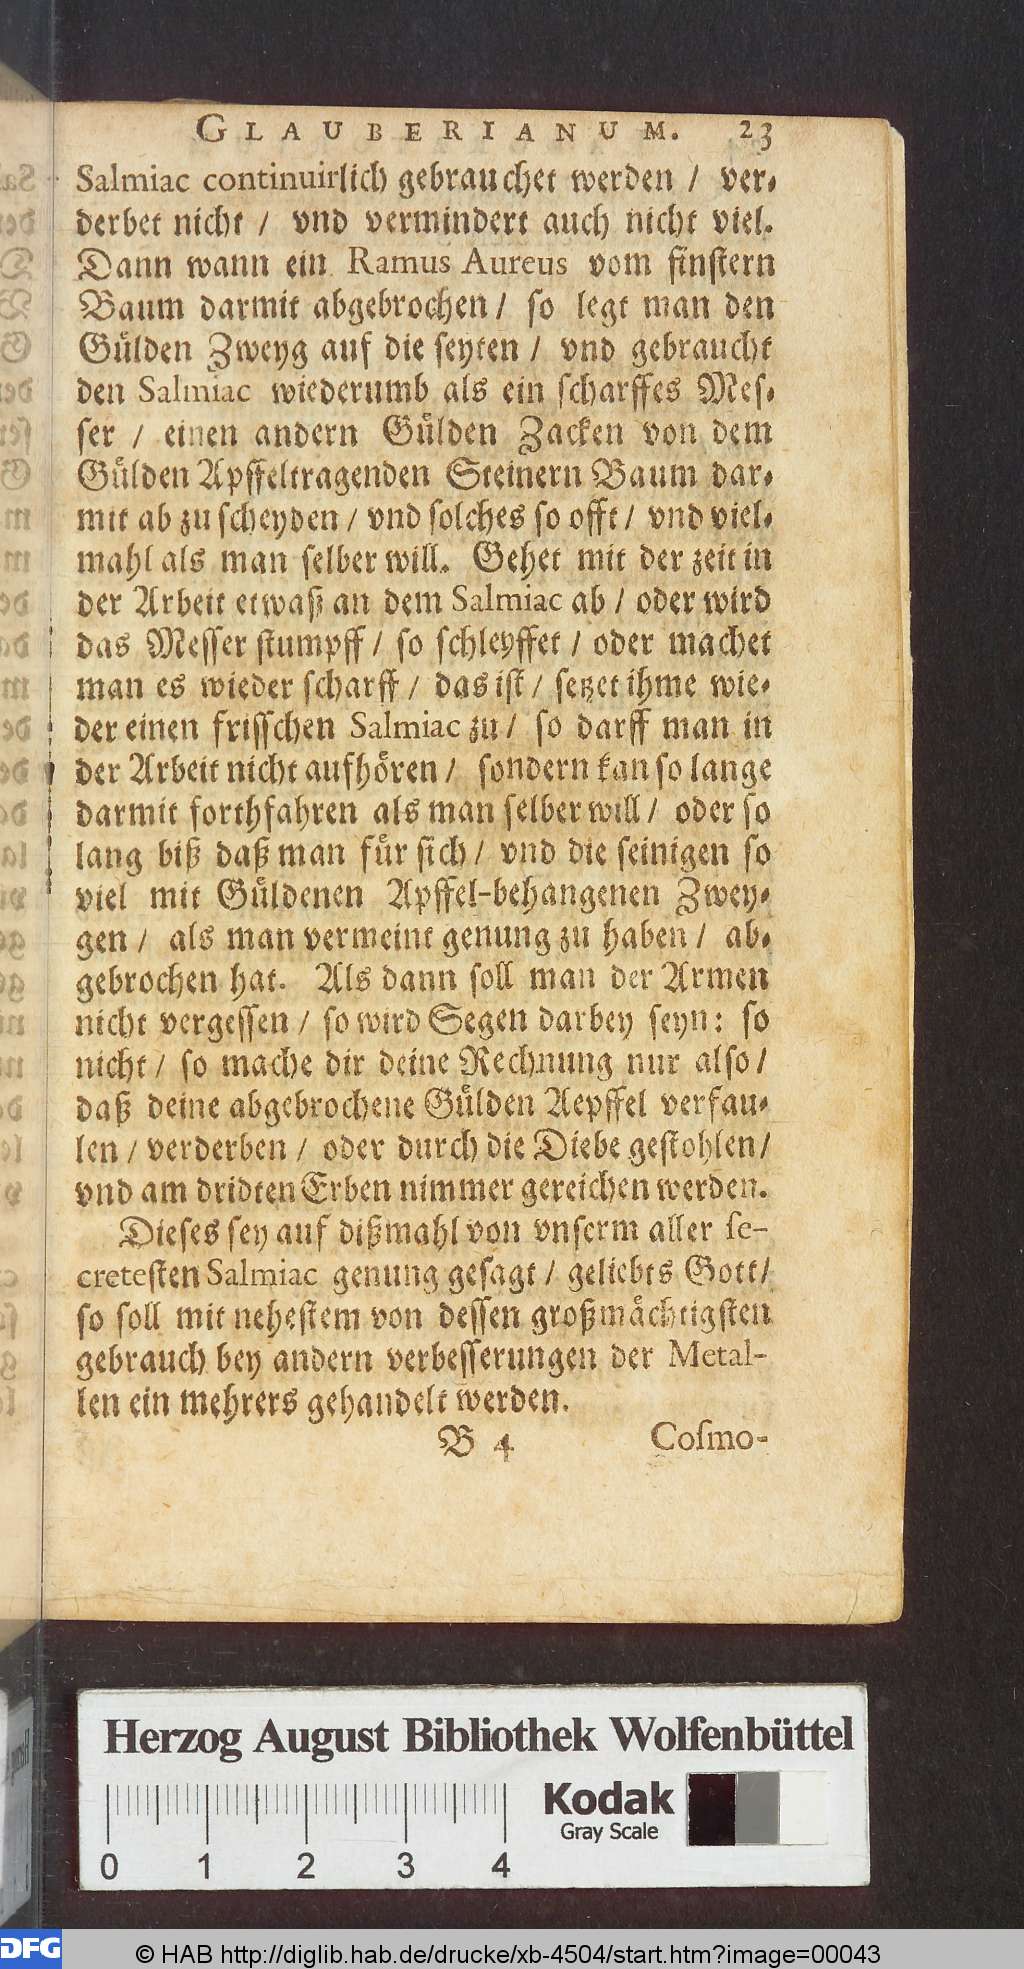 GLAUBERIANUM. 23
Salmiac continuirlich gebrauchet werden / ver-
derbet nicht / vnd vermindert auch nicht viel.
Dann wann ein Ramus Aureus vom finstern
Baum darmit abgebrochen / so legt man den
Gůlden Zweyg auf die seyten / vnd gebraucht
den Salmiac wiederumb als ein scharffes Mes-
ser / einen andern Gůlden Zacken von dem
Gůlden Apffeltragenden Steinern Baum dar-
mit ab zu scheyden / vnd solches so offt / vnd viel-
mahl als man selber will. Gehet mit der zeit in
der Arbeit etwaß an dem Salmiac ab / oder wird
das Messer stumpff / so schleyffet / oder machet
man es wieder scharff / das ist / setzet ihme wie-
der einen frisschen Salmiac zu / so darff man in
der Arbeit nicht aufhören / sondern kan so lange
darmit forthfahren als man selber will / oder so
lang biß daß man für sich / vnd die seinigen so
viel mit Gůldenen Apffel-behangenen Zwey-
gen / als man vermeint genung zu haben / ab-
gebrochen hat. Als dann soll man der Armen
nicht vergessen / so wird Segen darbey seyn: so
nicht / so mache dir deine Rechnung nur also /
daß deine abgebrochene Gůlden Aepffel verfau-
len / verderben / oder durch die Diebe gestohlen /
vnd am dridten Erben nimmer gereichen werden.
Dieses sey auf dißmahl von vnserm aller se-
cretesten Salmiac genung gesagt / geliebts Gott /
so soll mit nehestem von dessen großmächtigsten
gebrauch bey andern verbesserungen der Metal-
len ein mehrers gehandelt werden.
B 4 Cosmo-
Herzog August Bibliothek Wolfenbüttel
Kodak
Gray Scale
0 1 2 3 4
DFG © HAB http://diglib.hab.de/drucke/xb-4504/start.htm?image=00043